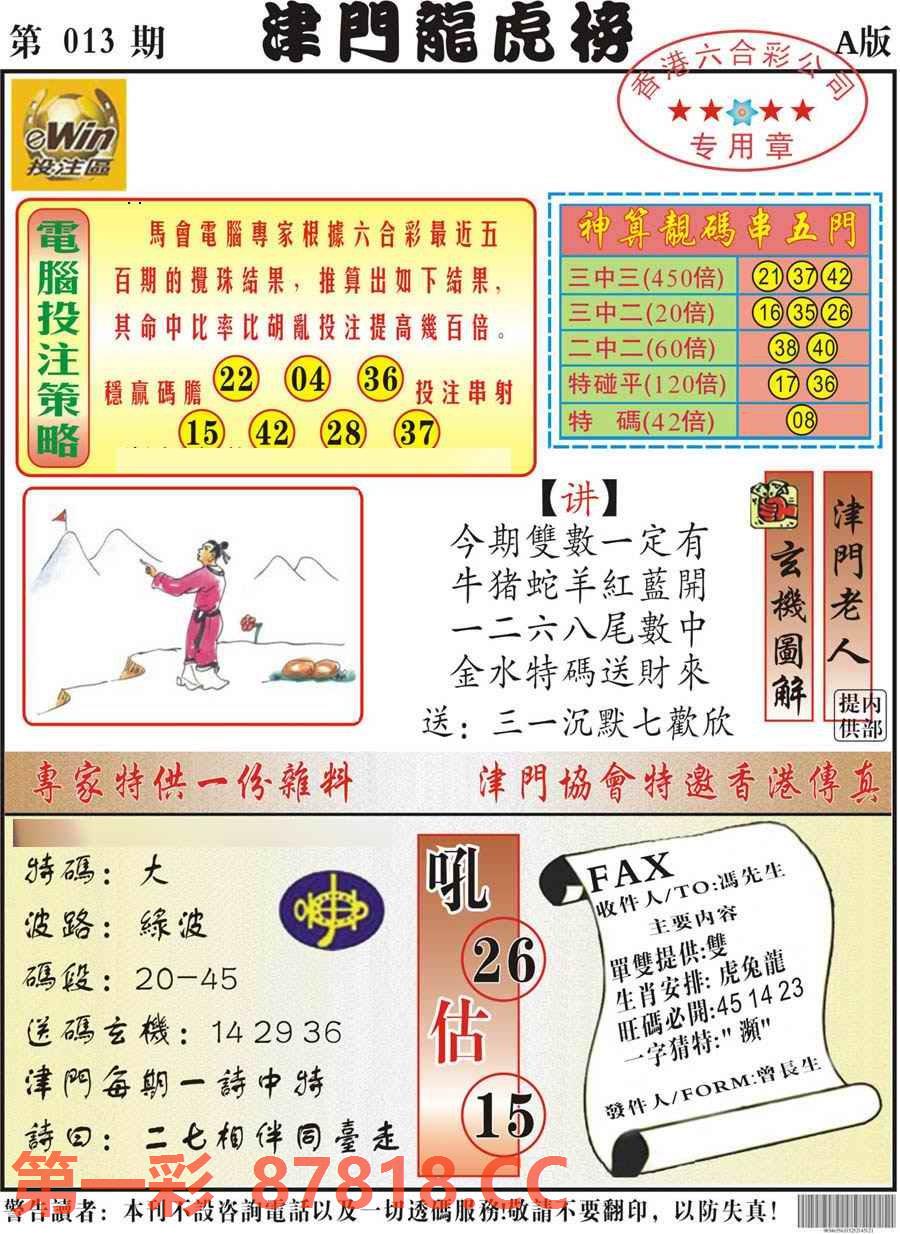 第 013 期
津門龍虎榜
A版
香港六合彩公司
专用章
eWin
投注區
電腦投注策略
馬會電腦專家根據六合彩最近五
百期的攪珠結果，推算出如下結果，
其命中比率比胡亂投注提高幾百倍。
穩贏碼膽 22 04 36 投注串射
15 42 28 37
神算靚碼串五門
三中三(450倍) 21 37 42
三中二(20倍) 16 35 26
二中二(60倍) 38 40
特碰平(120倍) 17 36
特 碼(42倍) 08
【讲】
今期雙數一定有
牛猪蛇羊紅藍開
一二六八尾數中
金水特碼送財來
送：三一沉默七歡欣
玄機圖解
津門老人
提供
内部
專家特供一份雜料
津門協會特邀香港傳真
特碼：大
波路：綠波
碼段：20-45
送碼玄機：14 29 36
津門每期一詩中特
詩曰：二七相伴同臺走
吼
26
估
15
FAX
收件人/TO:馮先生
主要内容
單雙提供:雙
生肖安排:虎兔龍
旺碼必開:45 14 23
一字猜特:"瀕"
發件人/FORM:曾長生
第一彩 87818.CC
警告讀者：本刊不設咨詢電話以及一切透碼服務!敬請不要翻印，以防失真!